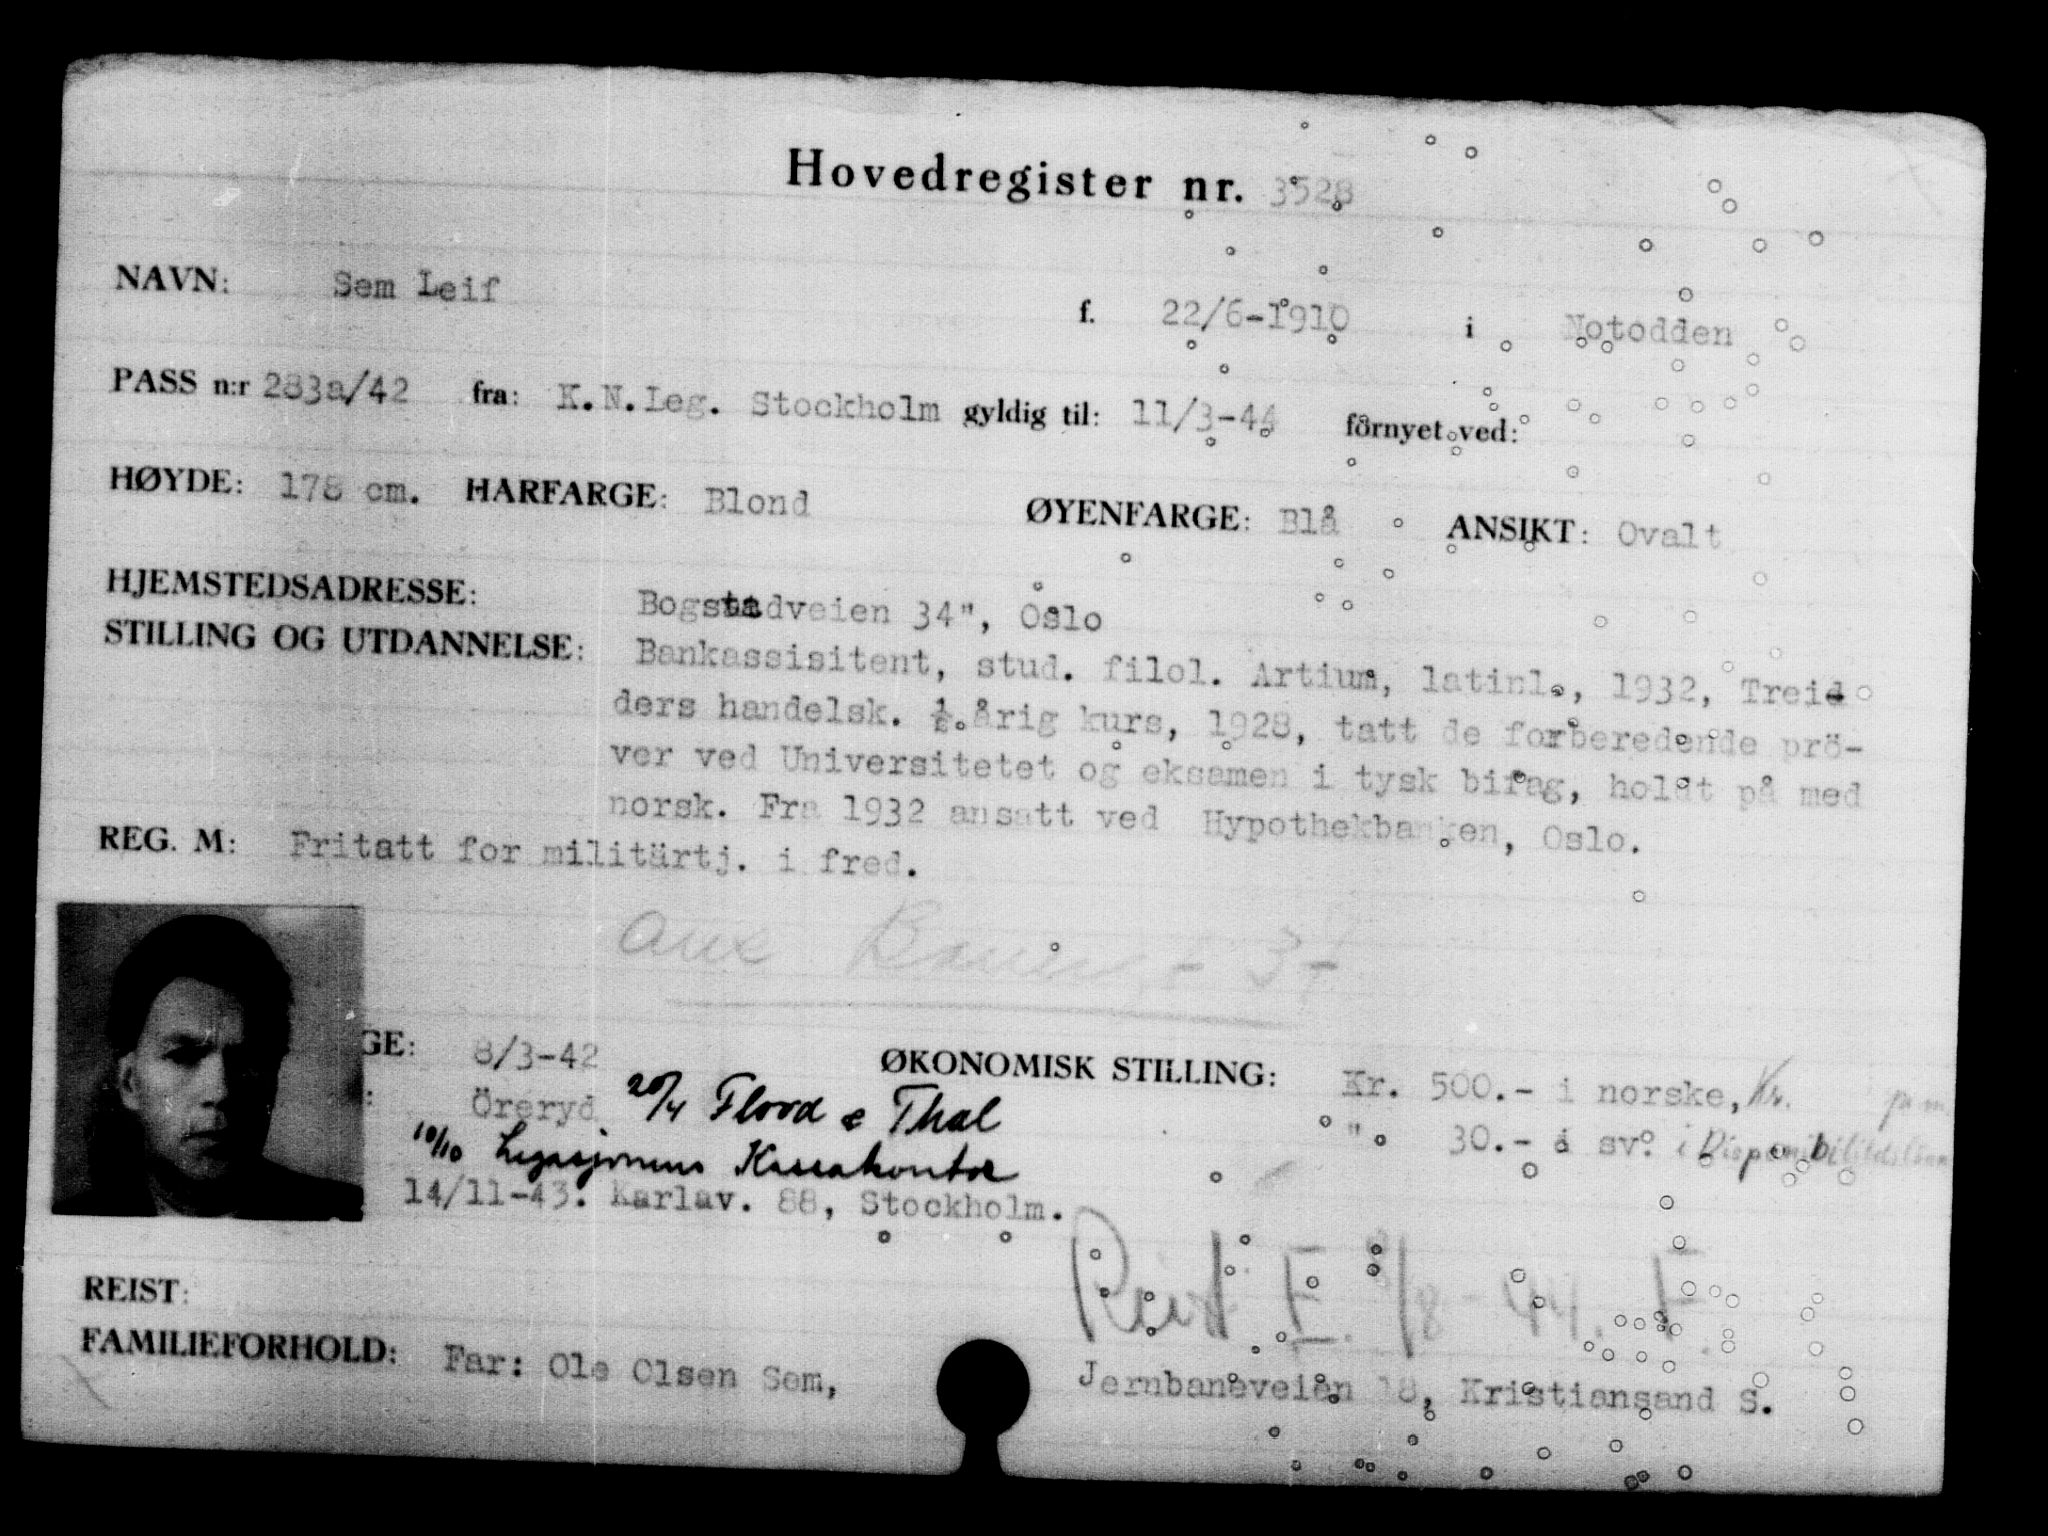 Hovedregister nr. 3528
NAVN: Sem Leif f. 22/6-1910 i Notodden
PASS n:r 283a/42 fra: K.N.Leg. Stockholm gyldig til: 11/3-44 förnyet ved:
HØYDE: 178 cm. HARFARGE: Blond ØYENFARGE: Blå ANSIKT: Ovalt
HJEMSTEDSADRESSE: Bogstadveien 34", Oslo
STILLING OG UTDANNELSE: Bankassisitent, stud. filol. Artium, latinl., 1932, Trei
ders handelsk. ½ årig kurs, 1928, tatt de forberedende prö-
ver ved Universitetet og eksamen i tysk bifag, holdt på med
norsk. Fra 1932 ansatt ved Hypothekbanken, Oslo.
REG. M: Fritatt for militärtj. i fred.
GE: 8/3-42 ØKONOMISK STILLING: Kr. 500.- i norske, Kr.
: Öreryd 20/4 Flood e Thal " 30.- i sv. i
10/10 Legasjonens Kassakontor
14/11-43. Karlav. 88, Stockholm.
Reist E. /8-44. F
REIST:
FAMILIEFORHOLD: Far: Ole Olsen Sem, Jernbaneveien 18, Kristiansand S.